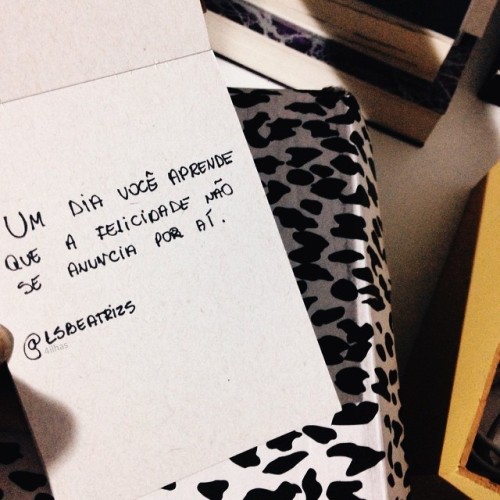 UM DIA VOCÊ APRENDE
QUE A FELICIDADE NÃO
SE ANUNCIA POR AÍ.
@LSBEATRIZS